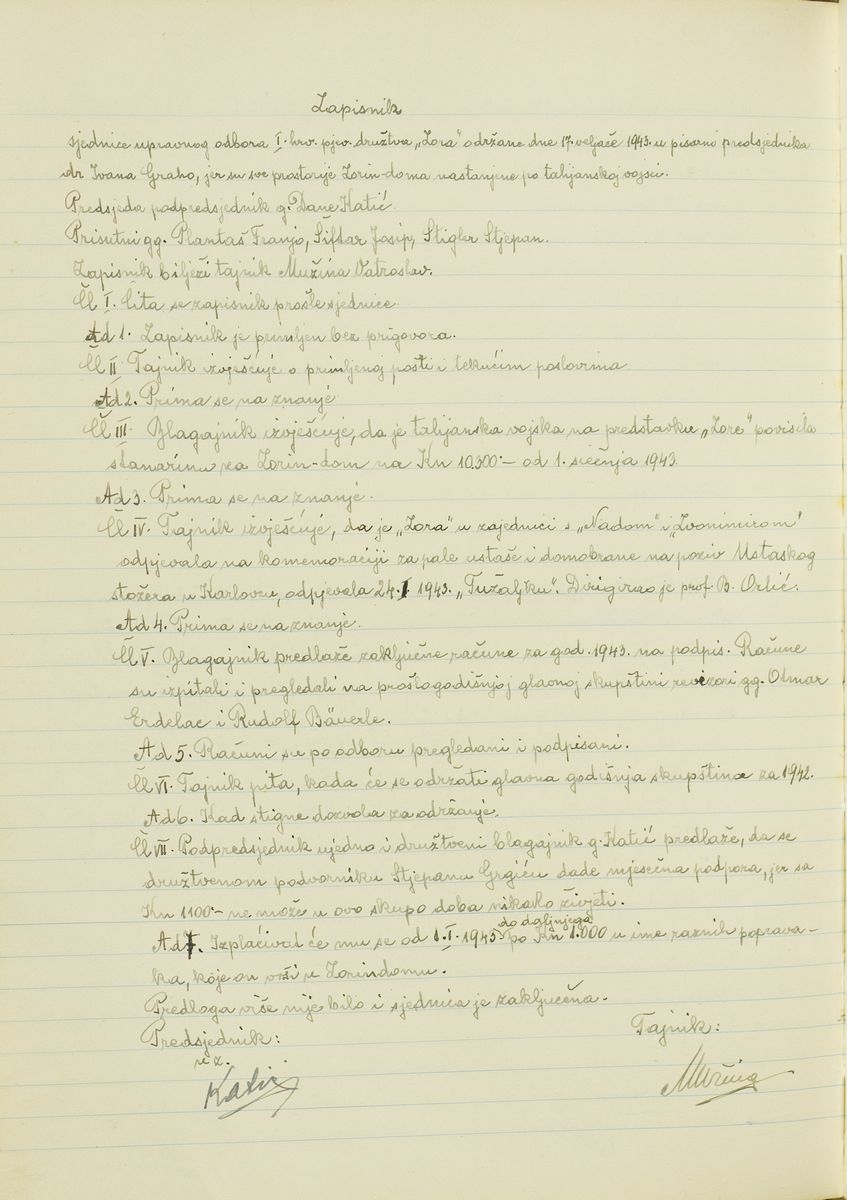 Zapisnik
sjednice upravnog odbora I. hrv. pjev. družtva „Zora" održane dne 17. veljače 1943. u pisarni predsjednika
dr Ivana Graho, jer su sve prostorije Zorin-doma nastanjene po talijanskoj vojsci.
Predsjeda podpredsjednik g. Dane Katić.
Prisutni gg. Plantaš Franjo, Šiftar Josip, Stigler Stjepan.
Zapisnik bilježi tajnik Mužina Vatroslav.
Čl I. Čita se zapisnik prošle sjednice.
Ad 1. Zapisnik je primljen bez prigovora.
Čl II. Tajnik izvješćuje o primljenoj pošti i tekućim poslovima
Ad 2. Prima se na znanje
Čl III. Blagajnik izvješćuje, da je talijanska vojska na predstavku „Zore" povisila
stanarinu za Zorin-dom na Kn 10.300·- od 1. siečnja 1943.
Ad 3. Prima se na znanje.
Čl IV. Tajnik izvješćuje, da je „Zora" u zajednici s „Nadom" i „Zvonimirom"
odpjevala na komemoraciji za pale ustaše i domobrane na poziv Ustaškog
stožera u Karlovcu, odpjevala 24. I 1943. „Tužaljku". Dirigirao je prof B. Orlić.
Ad 4. Prima se na znanje.
Čl V. Blagajnik predlaže zaključne račune za god. 1943. na podpis. Račune
su izpitali i pregledali na prošlogodišnjoj glavnoj skupštini revizori gg. Otmar
Erdelac i Rudolf Bäuerle.
Ad 5. Računi su po odboru pregledani i podpisani.
Čl VI. Tajnik pita, kada će se održati glavna godišnja skupština za 1942.
Ad 6. Kad stigne dozvola za održanje.
Čl VII. Podpredsjednik ujedno i družtveni blagajnik g. Katić predlaže, da se
družtvenom podvorniku Stjepanu Grgiću dade mjesečna podpora, jer sa
Kn 1100·- ne može u ovo skupo doba nikako živjeti.
do daljnjega
Ad 7. Izplaćivat će mu se od 1. I. 1943 po Kn 1.000 u ime raznih poprava-
ka, koje on vrši u Zorindomu.
Predloga više nije bilo i sjednica je zaključena.
Predsjednik: Tajnik:
u z.
Katić Mužina